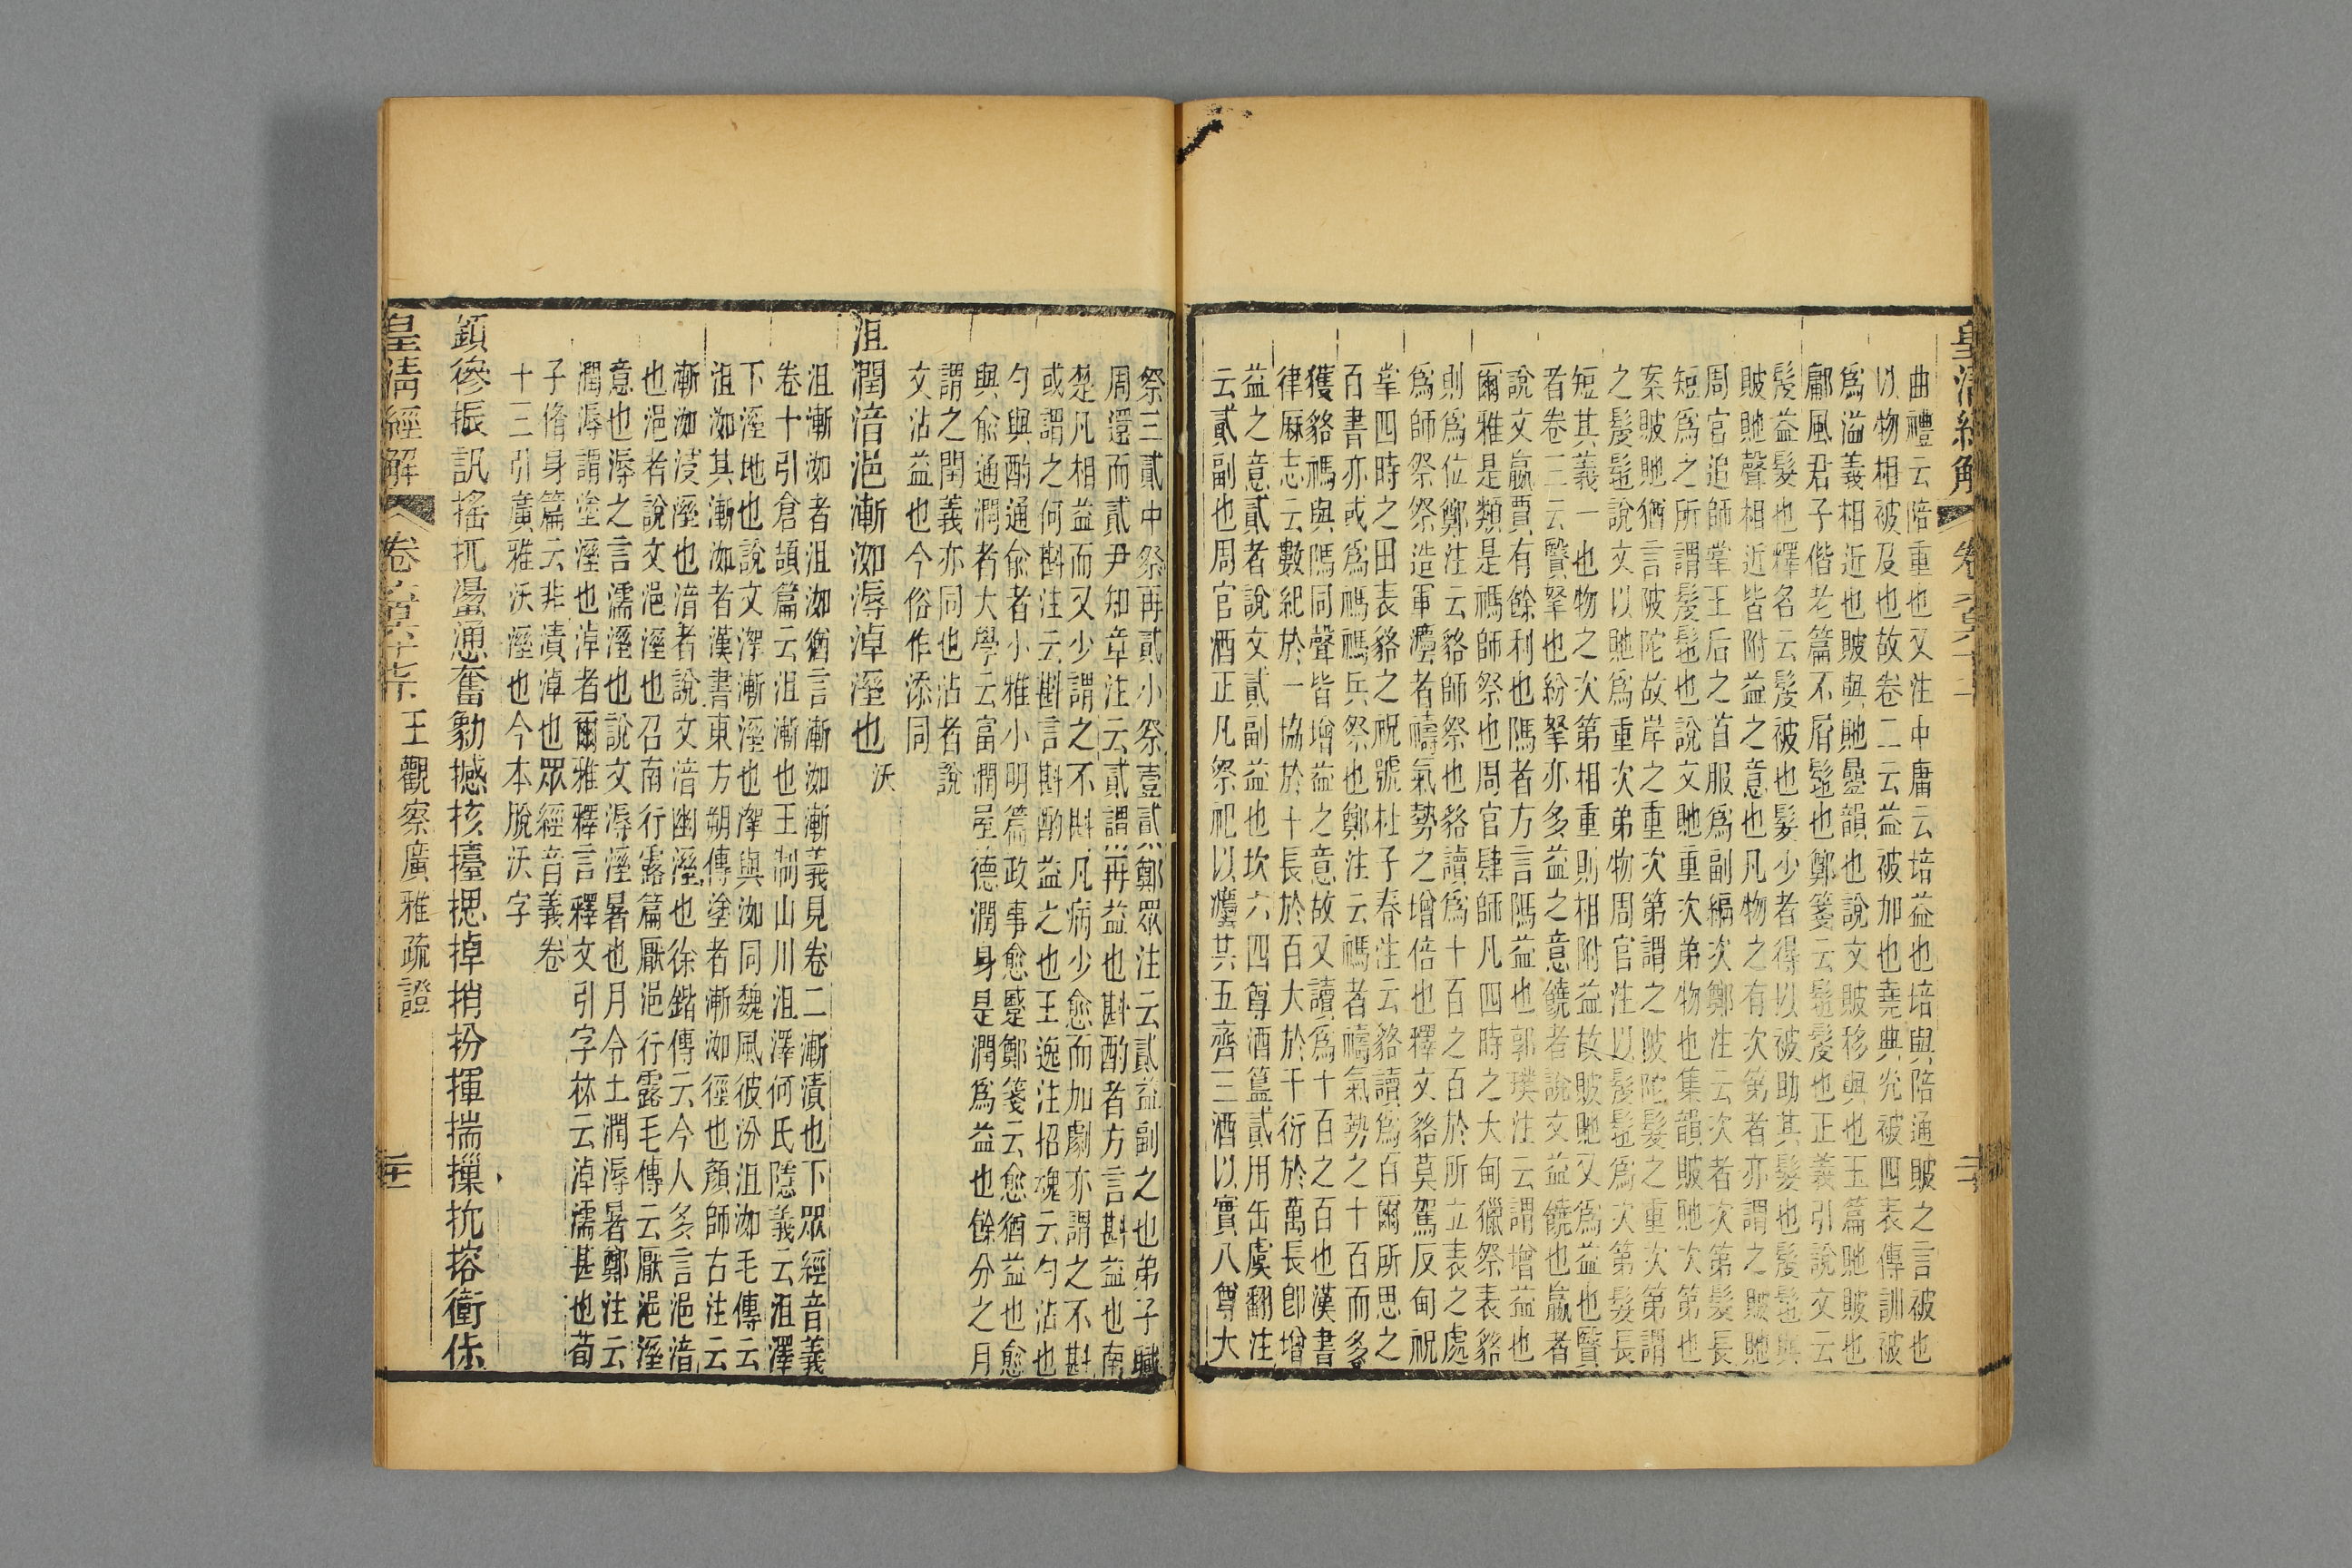 曲禮云陪重也又注中庸云培益也培與陪通貱之言被也
以物相被及也故卷二云益被加也堯典光被四表傳訓被
為溢義相近也貱與貤疊韻也說文貱移與也玉篇貤貱也
鄘風君子偕老篇不屑髢也鄭箋云髢髲也正義引說文云
髲益髮也釋名云髲被也髮少者得以被助其髮也髲髢與
貱貤聲相近皆附益之意也凡物之有次第者亦謂之貱貤
周官追師掌王后之首服為副編次鄭注云次者次第髮長
短為之所謂髲髢也說文貤重次弟物也集韻貱貤次第也
案貱貤猶言陂陀故岸之重次第謂之陂陀髮之重次第謂
之髲髢說文以貤為重次弟物周官注以髲髢為次第髮長
短其義一也物之次第相重則相附益故貱貤又為益也贅
者卷三云贅拏也紛拏亦多益之意饒者說文益饒也贏者
說文贏賈有餘利也隲者方言隲益也郭璞注云謂增益也
爾雅是類是禡師祭也周官肆師凡四時之大甸獵祭表貉
則為位鄭注云貉師祭也貉讀為十百之百於所立表之處
為師祭祭造軍灋者禱氣勢之增倍也釋文貉莫駕反甸祝
掌四時之田表貉之祝號杜子春注云貉讀為百爾所思之
百書亦或為禡禡兵祭也鄭注云禡者禱氣勢之十百而多
獲貉禡與隲同聲皆增益之意故又讀為十百之百也漢書
律厤志云數紀於一協於十長於百大於千衍於萬長卽增
益之意貳者說文貳副益也坎六四尊酒簋貳用缶虞翻注
云貳副也周官酒正凡祭祀以灋共五齊三酒以實八尊大
祭三貳中祭再貳小祭壹貳鄭眾注云貳益副之也弟子職
周還而貳尹知章注云貳謂再益也斟酌者方言斟益也南
楚凡相益而又少謂之不斟凡病少愈而加劇亦謂之不斟
或謂之何斟注云斟言斟酌益之也王逸注招魂云勺沾也
勺與酌通俞者小雅小明篇政事愈蹙鄭箋云愈猶益也愈
與俞通潤者大學云富潤屋德潤身是潤為益也餘分之月
謂之閏義亦同也沾者說
文沾益也今俗作添同
沮潤湆浥漸洳溽淖溼也 沃
沮漸洳者沮洳猶言漸洳漸義見卷二漸漬也下眾經音義
卷十引倉頡篇云沮漸也王制山川沮澤何氏隱義云沮澤
下溼地也說文漸溼也與洳同魏風彼汾沮洳毛傳云
沮洳其漸洳者漢書東方朔傳塗者漸洳徑也顏師古注云
漸洳浸溼也湆者說文湆幽溼也徐鍇傳云今人多言浥湆
也浥者說文浥溼也召南行露篇厭浥行露毛傳云厭浥溼
意也溽之言濡溼也說文溽溼暑也月令土潤溽暑鄭注云
潤溽謂塗溼也淖者爾雅釋言釋文引字林云淖濡甚也荀
子脩身篇云非漬淖也眾經音義卷
十三引廣雅沃溼也今本脫沃字
鎮㣓振訊搖抓盪𢠵奮勨撼核擡揌掉捎扮揮揣摷抗搈衝㑾
皇清經解 卷六百六十七上 王觀察廣雅疏證 二十